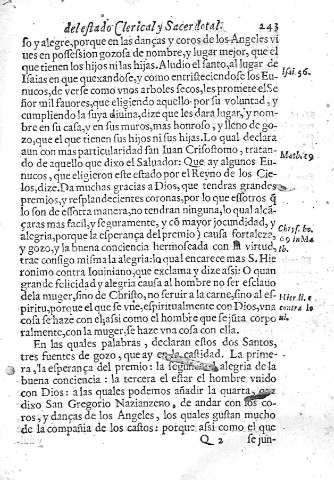 del estado Clerical y Sacerdotal. 243
so y alegre, porque en las danças y coros de los Angeles vi
ues en possession gozosa de nombre, y lugar mejor, que el
que tienen los hijos ni las hijas. Aludio el santo, al lugar de
Isaias en que quexandose, y como entristeciendose los Eu-
nucos, de verse como vnos arboles secos, les promete el Se
ñor mil fauores, que eligiendo aquello por su voluntad, y
cumpliendo la suya diuina, dize que les dara lugar, y nom
bre en su casa, y en sus muros, mas honroso, y lleno de go-
zo, que el que tienen sus hijos ni sus hijas. Lo qual declara
aun con mas particularidad san Iuan Crisostomo, tratan-
do de aquello que dixo el Saluador: Que ay algunos Eu-
nucos, que eligieron este estado por el Reyno de los Cie-
los, dize. Da muchas gracias a Dios, que tendras grandes
premios, y resplandecientes coronas, por lo que essotros q̃
lo son de essotra manera, no tendran ninguna, lo qual alcã-
çaras mas facil, y seguramente, y cõ mayor jocundidad, y
alegria, porque la esperança del premio) causa fortaleza,
y gozo, y la buena conciencia hermoseada con la virtud,
trae consigo misma la alegria: lo qual encarece mas S. Hie
ronimo contra Iouiniano, que exclama y dize assi: O quan
grande felicidad y alegria causa al hombre no ser esclauo
de la muger, sino de Christo, no seruir a la carne, sino al es-
piritu, porque el que se vne, espiritualmente con Dios, vna
cosa se haze con el, assi como el hombre que se jũta corpo
ralmente, con la muger, se haze vna cosa con ella.
En las quales palabras, declaran estos dos Santos,
tres fuentes de gozo, que ay en la castidad. La prime-
ra, la esperança del premio: la segunda el alegria de la
buena conciencia: la tercera el estar el hombre vnido
con Dios: a las quales podemos añadir la quarta, que
dixo San Gregorio Nazianzeno, de andar con los co-
ros, y danças de los Angeles, los quales gustan mucho
de la compañia de los castos: porque assi como el que
Q 2 se jun-
Isai. 56.
Math. 19
Chrys. ho.
in Ma
th.
Hier. li.
contra Io
ui.